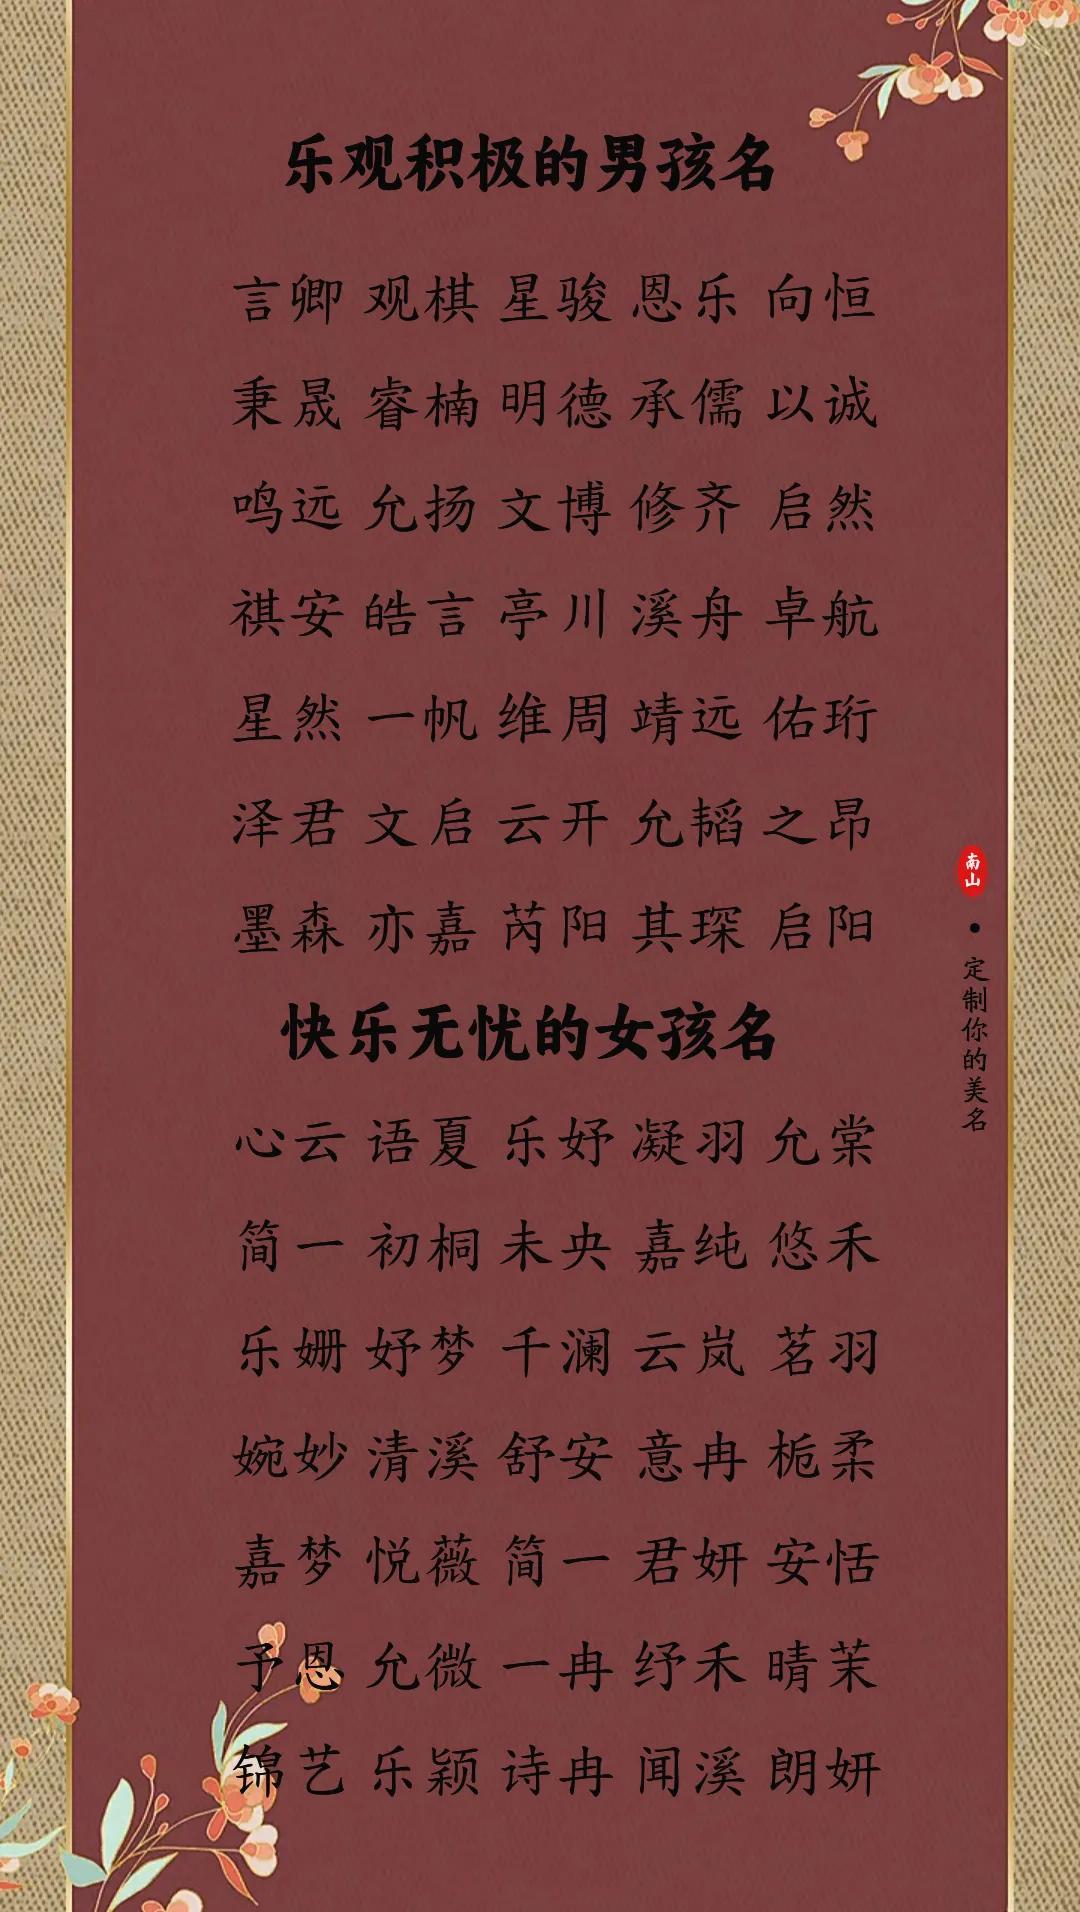 乐观积极的男孩名
言卿 观棋 星骏 恩乐 向恒
秉晟 睿楠 明德 承儒 以诚
鸣远 允扬 文博 修齐 启然
祺安 皓言 亭川 溪舟 卓航
星然 一帆 维周 靖远 佑珩
泽君 文启 云开 允韬 之昂
墨森 亦嘉 芮阳 其琛 启阳
快乐无忧的女孩名
心云 语夏 乐妤 凝羽 允棠
简一 初桐 未央 嘉纯 悠禾
乐姗 妤梦 千澜 云岚 茗羽
婉妙 清溪 舒安 意冉 栀柔
嘉梦 悦薇 简一 君妍 安恬
予恩 允微 一冉 纾禾 晴茉
锦艺 乐颖 诗冉 闻溪 朗妍
南山
·定制你的美名